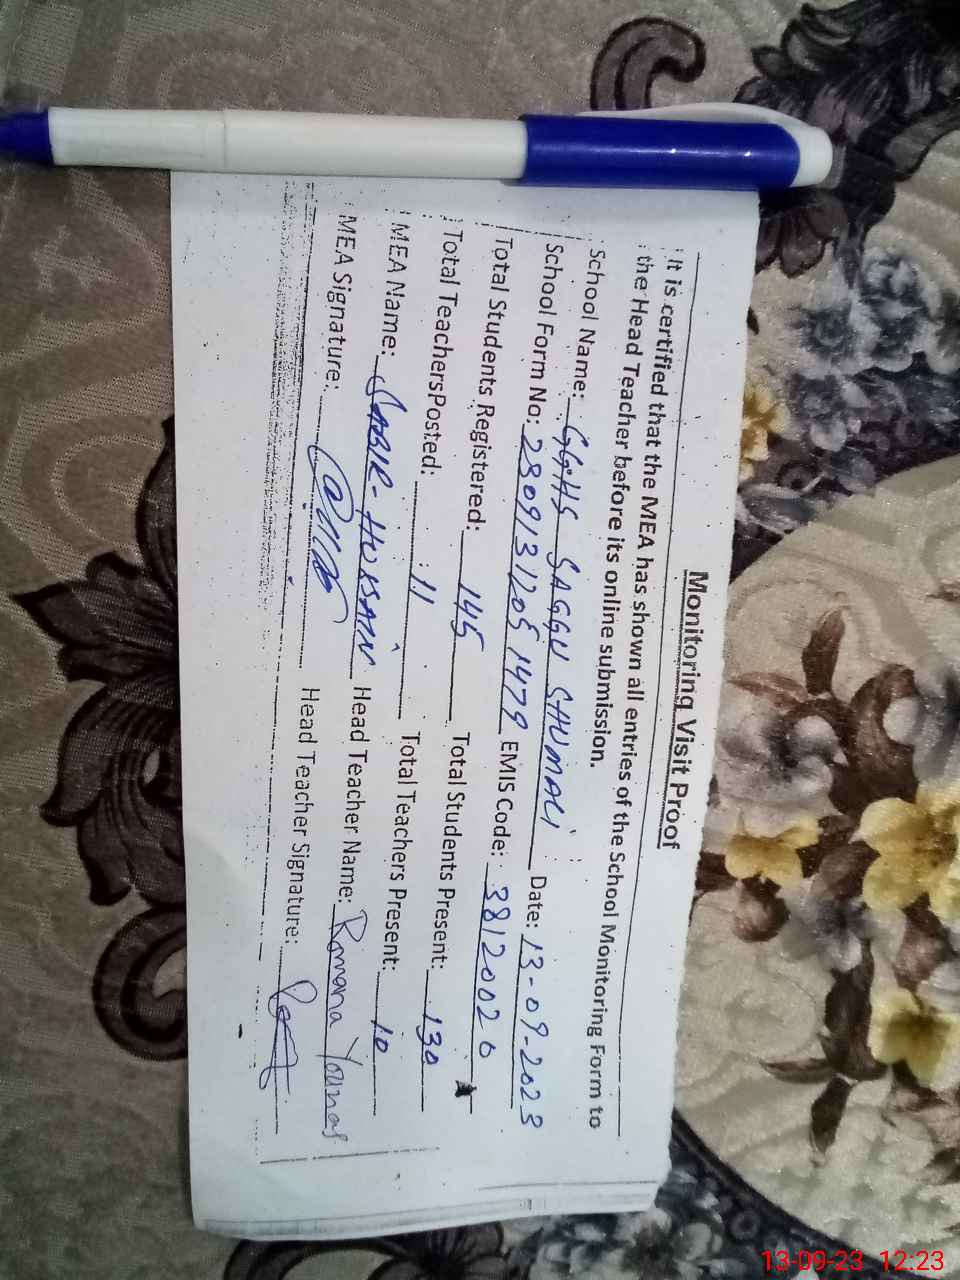 Monitoring Visit Proof
It is certified that the MEA has shown all entries of the School Monitoring Form to
the Head Teacher before its online submission.
School Name: GGHS SAGGU SHUMALI Date: 13-09-2023
School Form No: 2309131205 1479 EMIS Code: 38120020
Total Students Registered: 145 Total Students Present: 130
Total TeachersPosted: 11 Total Teachers Present: 10
MEA Name: SABIR-HUSSAIN Head Teacher Name: Romana Younas
MEA Signature: Head Teacher Signature:
13-09-23 12:23